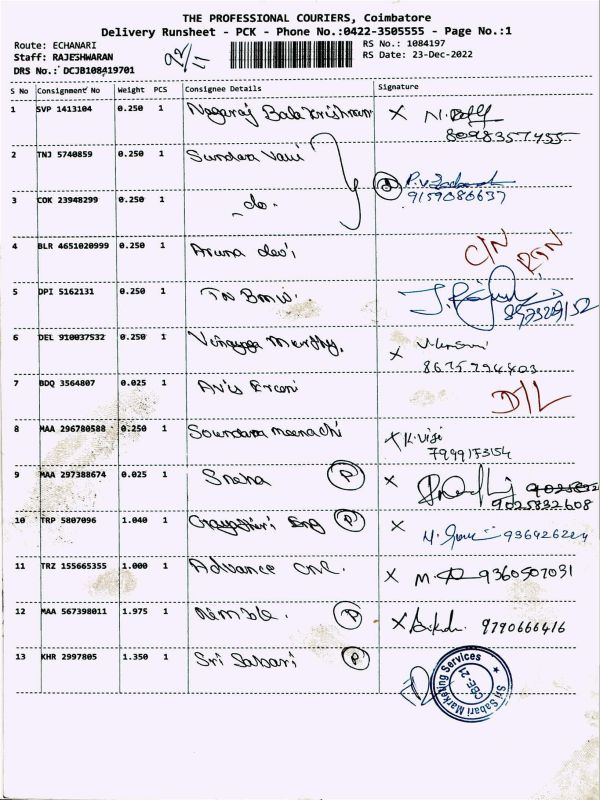 THE PROFESSIONAL COURIERS, Coimbatore
Delivery Runsheet - PCK - Phone No.:0422-3505555 - Page No.:1
Route: ECHANARI
RS No.: 1084197
Staff: RAJESHWARAN
RS Date: 23-Dec-2022
DRS No.: DCJB108419701
S No Consignment No Weight PCS Consignee Details Signature
1 SVP 1413104 0.250 1 Nagaraj Bala Krishnan X
8098357455
2 TNJ 5740859 0.250 1 Sundara Vani
3 COK 23948299 0.250 1 -do-
9159086637
4 BLR 4651020999 0.250 1 Aruna devi C/N
5 DPI 5162131 0.250 1 TN
6 DEL 910037532 0.250 1 Murthy. X
7 BDQ 3564807 0.025 1 Avis D/L
8 MAA 296780588 0.250 1 Soundara meenachi X K. Viji
9 MAA 297388674 0.025 1 Sneha P X
9025832608
10 TRP 5807096 1.040 1 Gayathiri Eng P X
11 TRZ 155665355 1.000 1 Advance CNC. X M. 9360507031
12 MAA 567398011 1.975 1 Nimble. P X 9790666416
13 KHR 2997805 1.350 1 Sri Sabari P
Sri Sabari Marketing Services
CBE-21